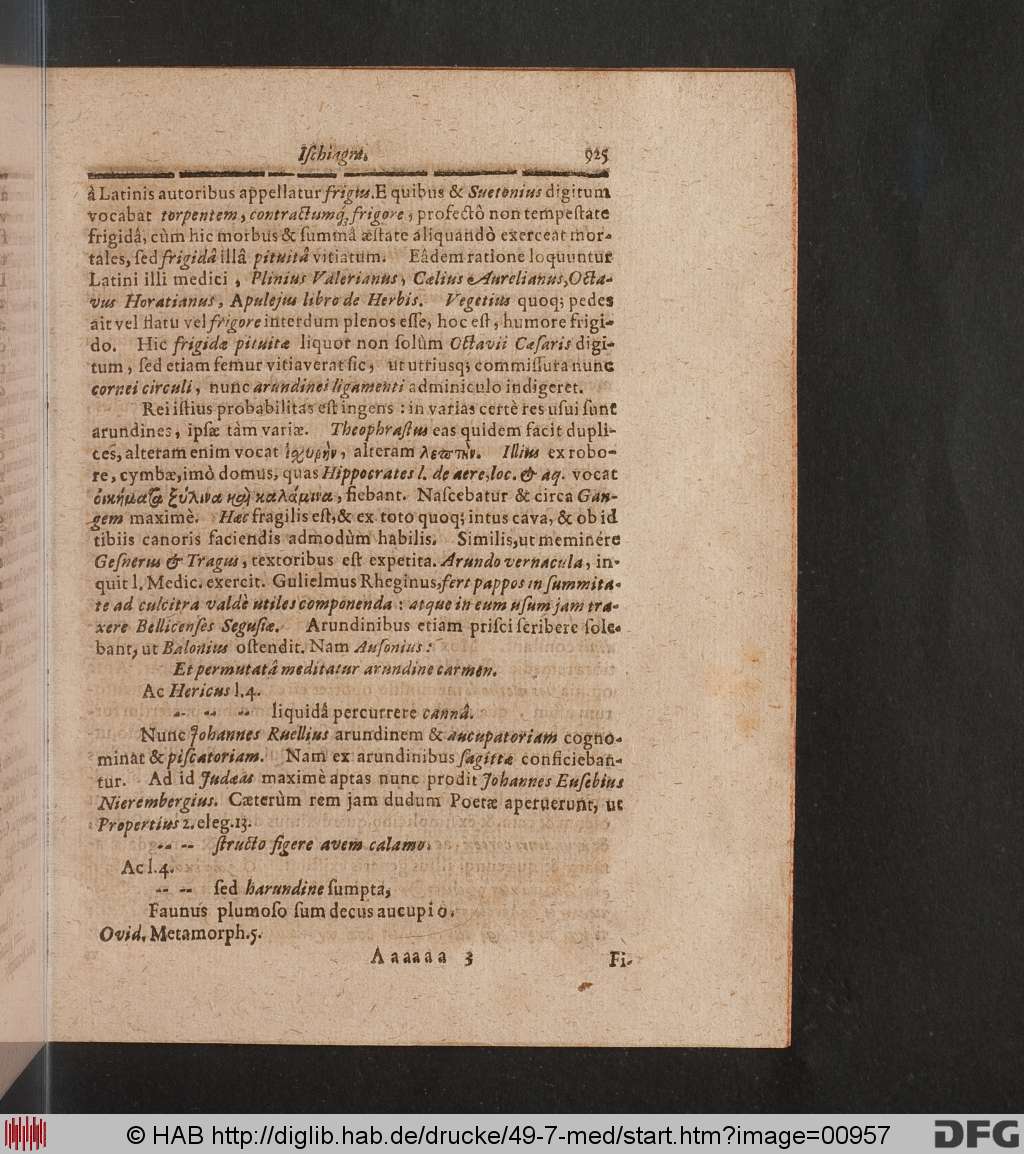 Iſchiagra. 925
â Latinis autoribus appellatur frigus. E quibus & Suetonius digitum
vocabat torpentem, contractumq; frigore, profectò non tempeſtate
frigidâ, cùm hic morbus & ſummâ æſtate aliquandò exerceat mor-
tales, ſed frigidâ illâ pituitâ vitiatum. Eâdem ratione loquuntur
Latini illi medici, Plinius Valerianus, Cælius Aurelianus, Octa-
vus Horatianus, Apulejus libro de Herbis. Vegetius quoq; pedes
ait vel flatu vel frigore interdum plenos eſſe, hoc eſt, humore frigi-
do. Hic frigidæ pituitæ liquor non ſolùm Octavii Cæſaris digi-
tum, ſed etiam femur vitiaverat ſic, ut utriusq; commiſſura nunc
cornei circuli, nunc arundinei ligamenti adminiculo indigeret.
Rei iſtius probabilitas eſt ingens: in varias certè res uſui ſunt
arundines, ipſæ tàm variæ. Theophraſtus eas quidem facit dupli-
ces, alteram enim vocat ἰσχυρὴν, alteram λεπτὴν. Illius ex robo-
re, cymbæ, imò domus, quas Hippocrates l. de aere, loc. & aq. vocat
οἰκήματα ξύλινα καὶ καλάμινα, fiebant. Naſcebatur & circa Gan-
gem maximè. Hæc fragilis eſt, & ex toto quoq; intus cava, & ob id
tibiis canoris faciendis admodùm habilis. Similis, ut meminêre
Geſnerus & Tragus, textoribus eſt expetita. Arundo vernacula, in-
quit l. Medic. exercit. Gulielmus Rheginus, fert pappos in ſummita-
te ad culcitra valdè utiles componenda: atque in eum uſum jam tra-
xere Bellicenſes Seguſiæ. Arundinibus etiam priſci ſcribere ſole-
bant, ut Balonius oſtendit. Nam Auſonius:
Et permutatâ meditatur arundine carmen.
Ac Hericus l. 4.
-- -- -- liquidâ percurrere cannâ.
Nunc Johannes Ruellius arundinem & aucupatoriam cogno-
minat & piſcatoriam. Nam ex arundinibus ſagittæ conficieban-
tur. Ad id Judæas maximè aptas nunc prodit Johannes Euſebius
Nierembergius. Cæterùm rem jam dudum Poetæ aperuerunt, ut
Propertius 2. eleg. 13.
-- -- ſtructo figere avem calamo.
Ac l. 4.
-- -- ſed harundine ſumpta,
Faunus plumoſo ſum decus aucupio.
Ovid. Metamorph. 5.
Aaaaaa 3 Fi-
© HAB http://diglib.hab.de/drucke/49-7-med/start.htm?image=00957 DFG